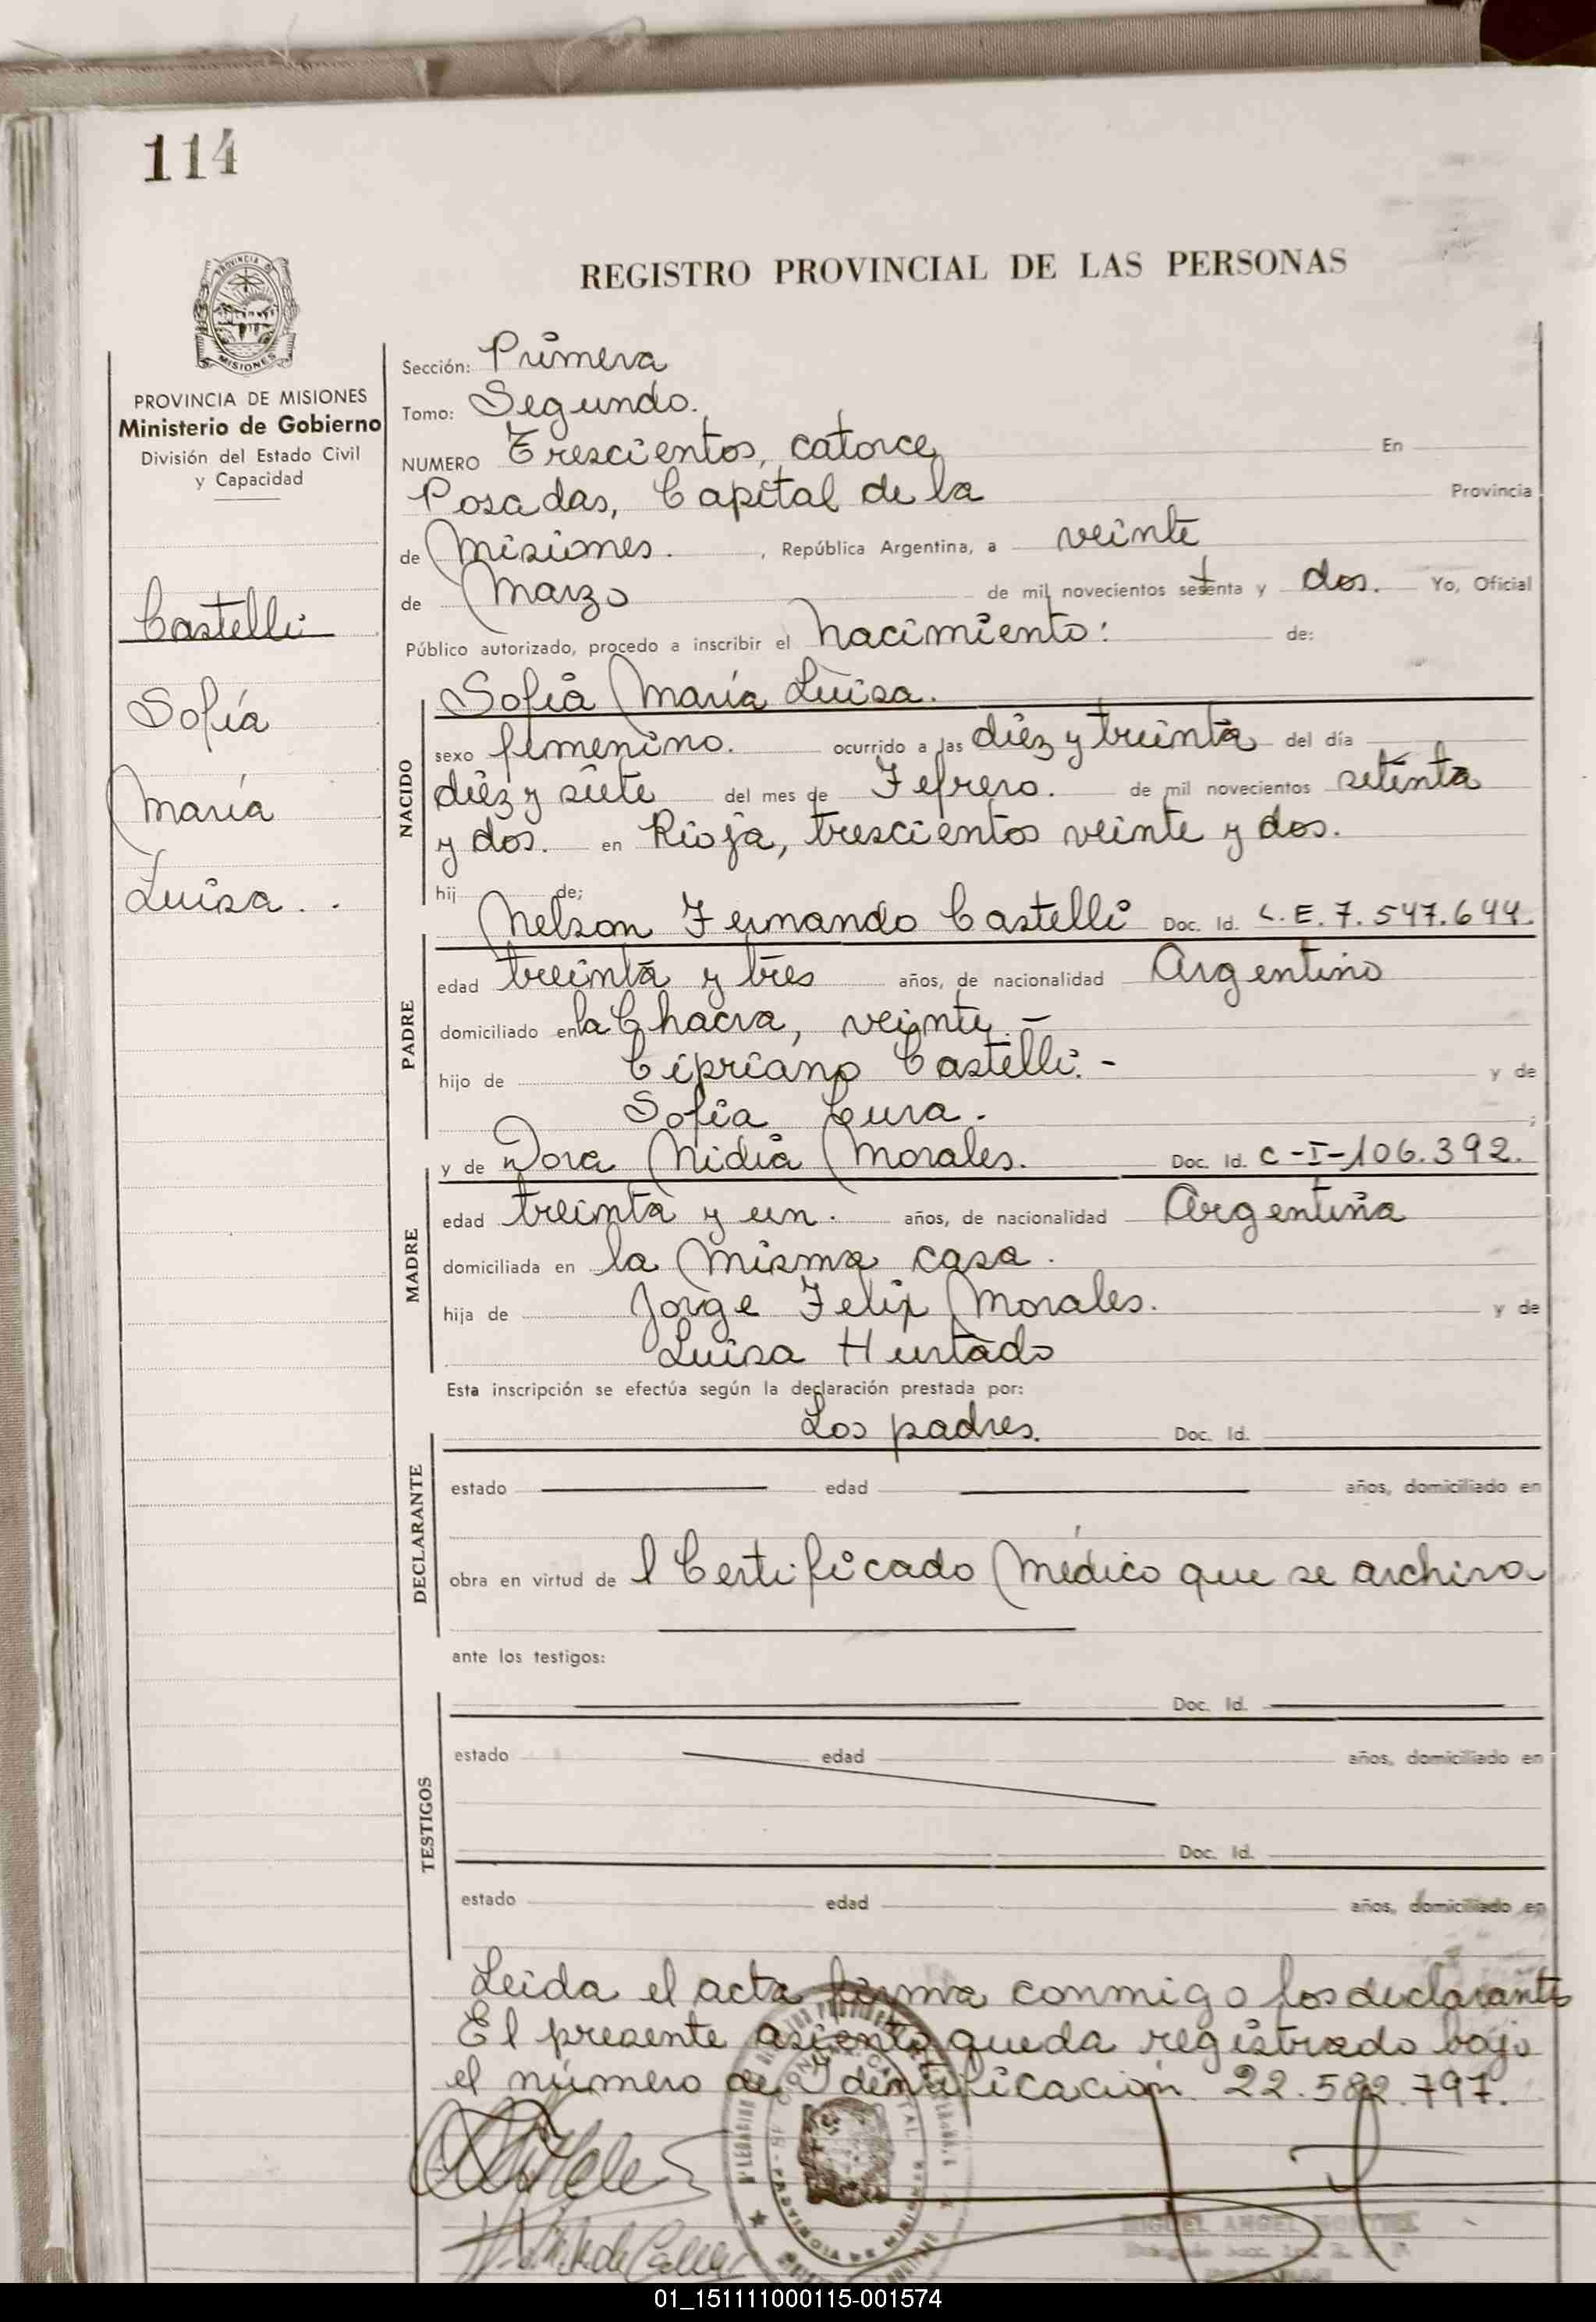 114
REGISTRO PROVINCIAL DE LAS PERSONAS
PROVINCIA DE
MISIONES
PROVINCIA DE MISIONES
Ministerio de Gobierno
División del Estado Civil
y Capacidad
Castelli
Sofía
María
Luisa..
Sección: Primera
Tomo: Segundo.
NUMERO Trescientos, catorce En
Posadas, Capital de la Provincia
de Misiones. , República Argentina, a veinte
de Marzo de mil novecientos setenta y dos. Yo, Oficial
Público autorizado, procedo a inscribir el Nacimiento: de:
NACIDO
Sofia María Luisa.
sexo femenino. ocurrido a las diéz y treinta del día
diéz y siete del mes de Fefrero. de mil novecientos setenta
y dos. en Rioja, trescientos veinte y dos.
hij de;
PADRE
Nelson Fernando Castelli Doc. Id. L.E.7.547.644.
edad treinta y tres años, de nacionalidad Argentino
domiciliado en la Chacra, veinte.-
hijo de Cipriano Castelli.- y de
Sofia Leura. ;
MADRE
y de Dora Nidia Morales. Doc. Id. C-I-106.392.
edad treinta y un. años, de nacionalidad Argentina
domiciliada en la misma casa.
hija de Jorge Felix Morales. y de
Luisa Hurtado
Esta inscripción se efectúa según la declaración prestada por:
DECLARANTE
Los padres. Doc. Id.
estado edad años, domiciliado en
obra en virtud de l Certificado Médico que se archiva
ante los testigos:
TESTIGOS
Doc. Id.
estado edad años, domiciliado en
Doc. Id.
estado edad años, domiciliado en
Leida el acta firma conmigo los declarantes
El presente asiento queda registrado bajo
el número de Identificación 22.582.797.
PROVINCIA DE MISIONES
MIGUEL ANGEL
01_151111000115-001574